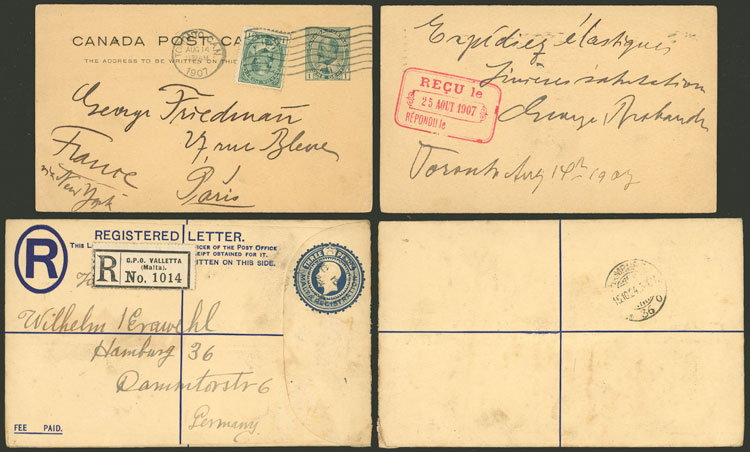 CANADA POST CA
THE ADDRESS TO BE WRITTEN ON THIS
TORONTO CAN.
AUG 14
1907
George Friedman
47 rue Bleue
Paris
France
via New York
Expédiez élastiques
Sincères salutation
George
Toronto Aug 14th 1907
REÇU le
25 AOUT 1907
RÉPONDU le
REGISTERED LETTER.
THIS L
ICER OF THE POST OFFICE
EIPT OBTAINED FOR IT.
RITTEN ON THIS SIDE.
R
R
G.P.O. VALLETTA
(Malta).
No. 1014
THREE PENCE
MALTA REGISTRATION
Wilhelm
Hamburg 36
Dammtorstr 6
Germany
FEE PAID.
36